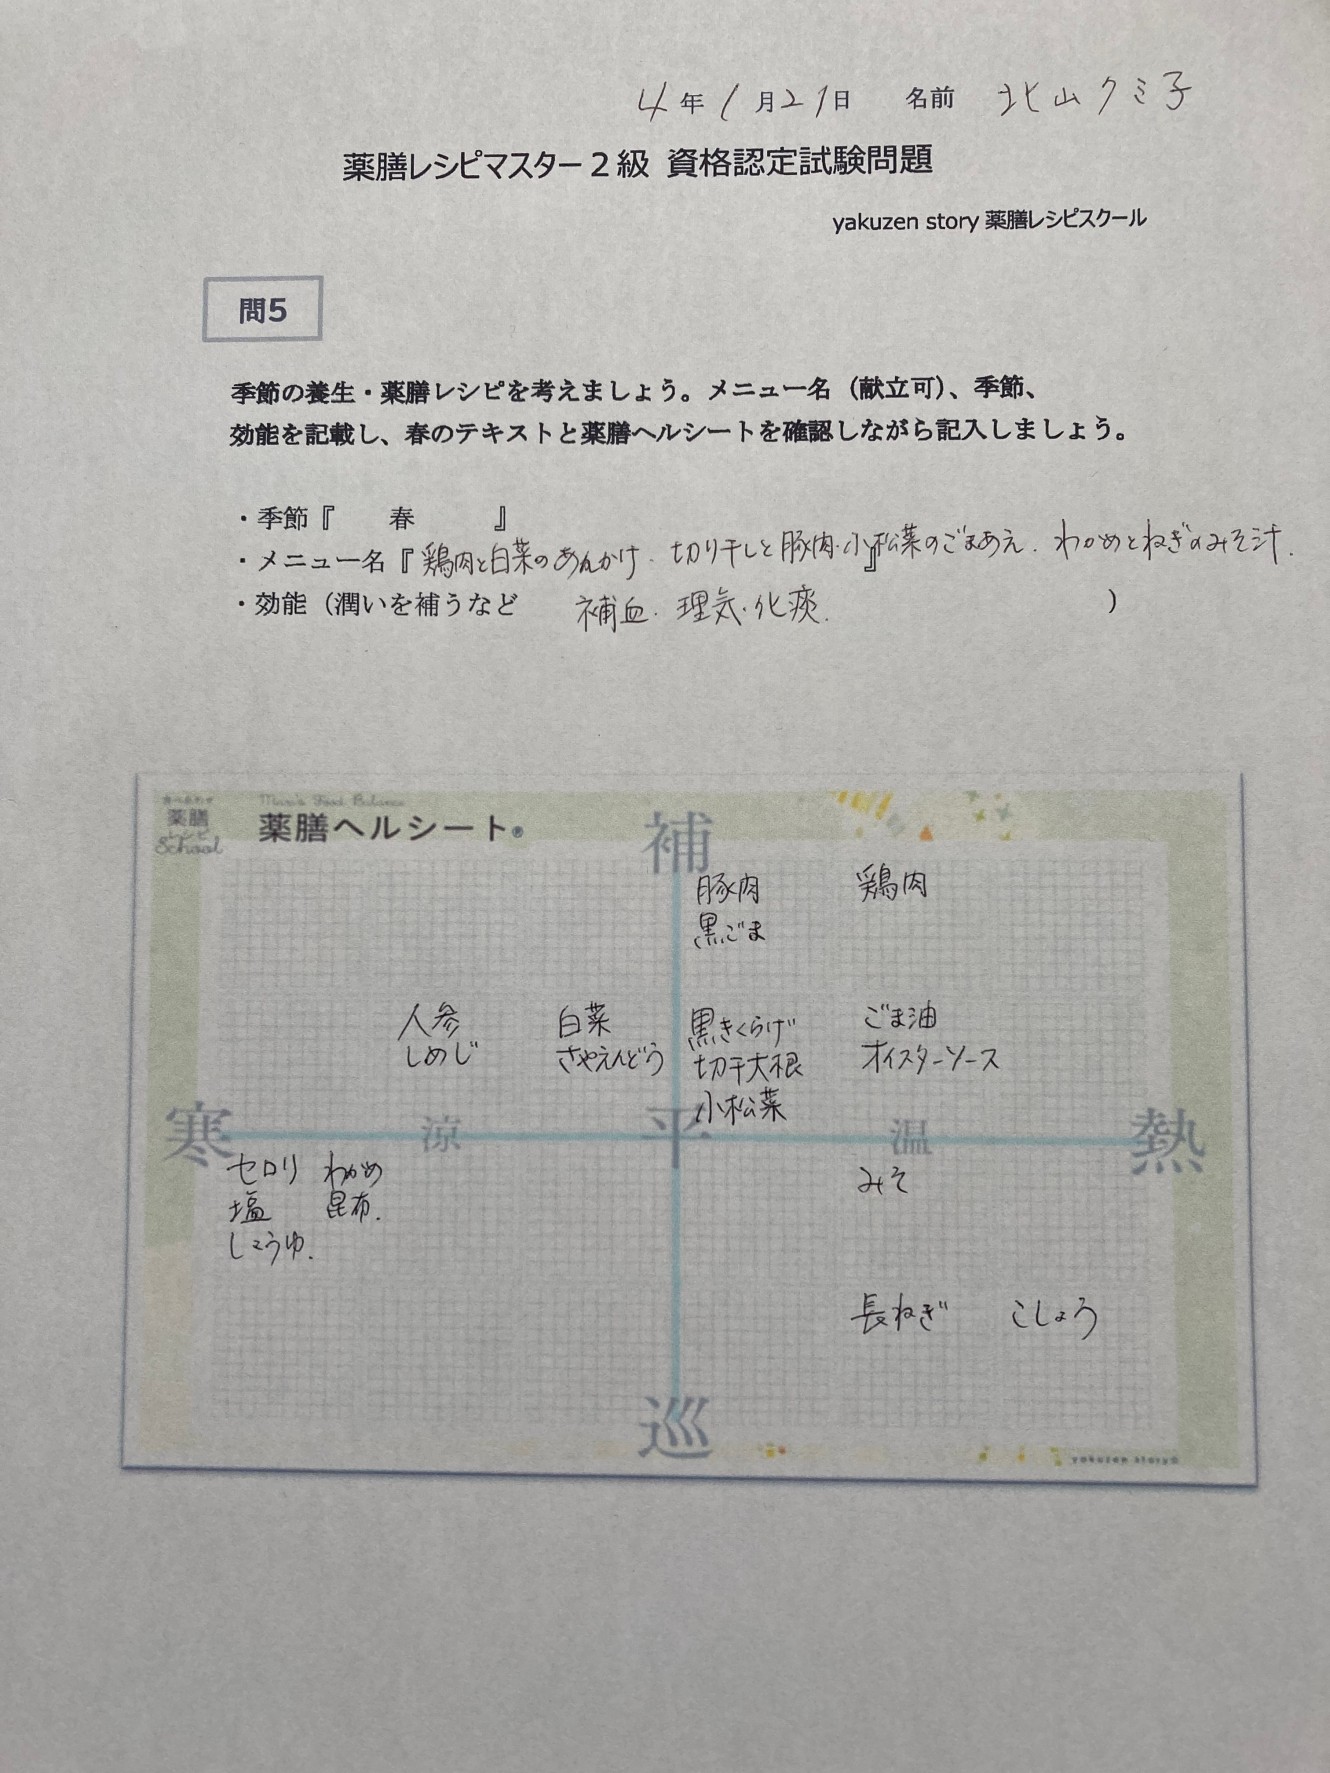 4年1月21日 名前 北山クミ子
薬膳レシピマスター2級 資格認定試験問題
yakuzen story 薬膳レシピスクール
問5
季節の養生・薬膳レシピを考えましょう。メニュー名（献立可）、季節、
効能を記載し、春のテキストと薬膳ヘルシートを確認しながら記入しましょう。
・季節『 春 』
・メニュー名『鶏肉と白菜のあんかけ・切り干しと豚肉・小松菜のごまあえ・わかめとねぎのみそ汁.』
・効能（潤いを補うなど 補血・理気・化痰. ）
食べあわせ
薬膳
レシピ
School
Mum's Food Balance
薬膳ヘルシート®
補
豚肉 鶏肉
黒ごま
人参 白菜 黒きくらげ ごま油
しめじ さやえんどう 切干大根 オイスターソース
小松菜
寒 涼 平 温 熱
セロリ わかめ みそ
塩 昆布.
しょうゆ.
長ねぎ こしょう
巡
yakuzen story©